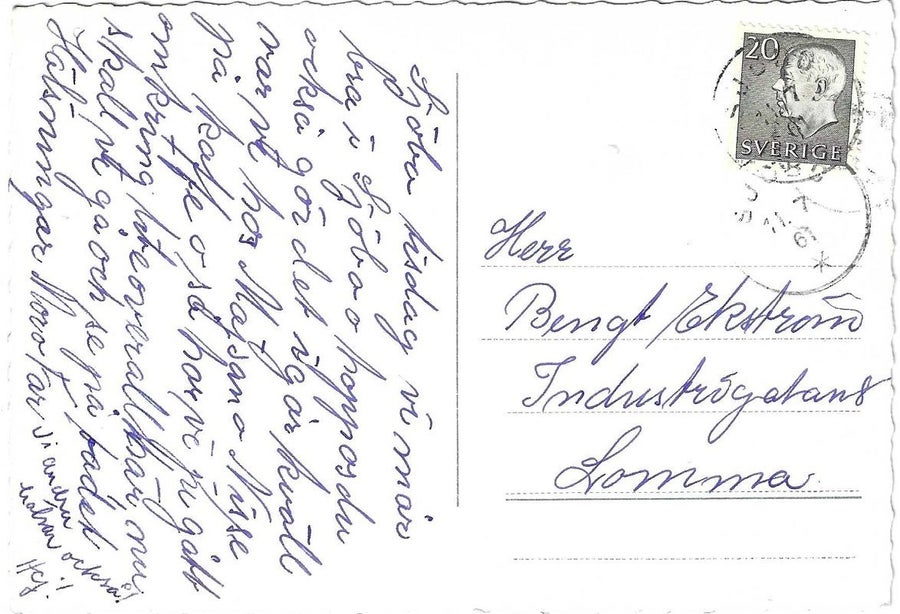 Sjöbo tisdag vi mår
bra i Sjöbo o hoppas du
också gör det igår kväll
var vi hos Majsan o Nisse
på kaffe o så har vi gått
omkring lite överallt här nu
skall vi gå och se på badet
Hälsningar Mor o Far
vi andra
hälsar också!
Hej!
20
SVERIGE
Herr
Bengt Ekström
Industrigatan 8
Lomma